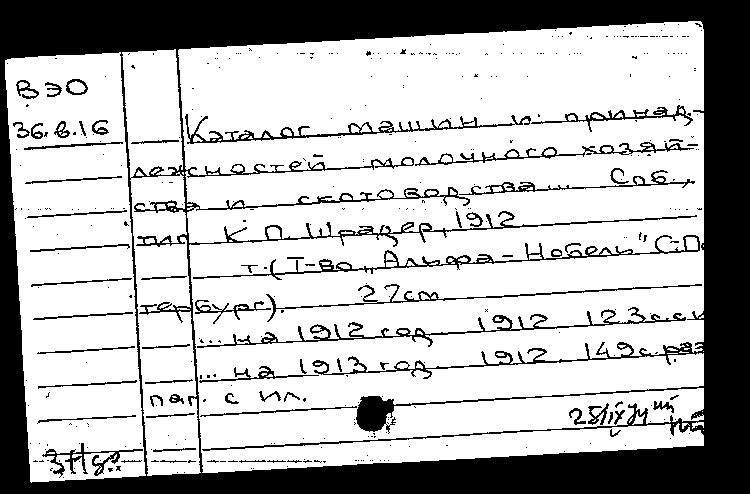 ВЭО
36.в.16
Каталог машин и принад-
лежностей молочного хозяй-
ства и скотоводства... Спб.,
тип. К.П. Шрадер, 1912
т. (Т-во „Альфа-Нобель" С-Пе
тербург). 27 cm
... на 1912 год 1912 123с.с и
... на 1913 год 1912. 149с. раз
паг. с ил.